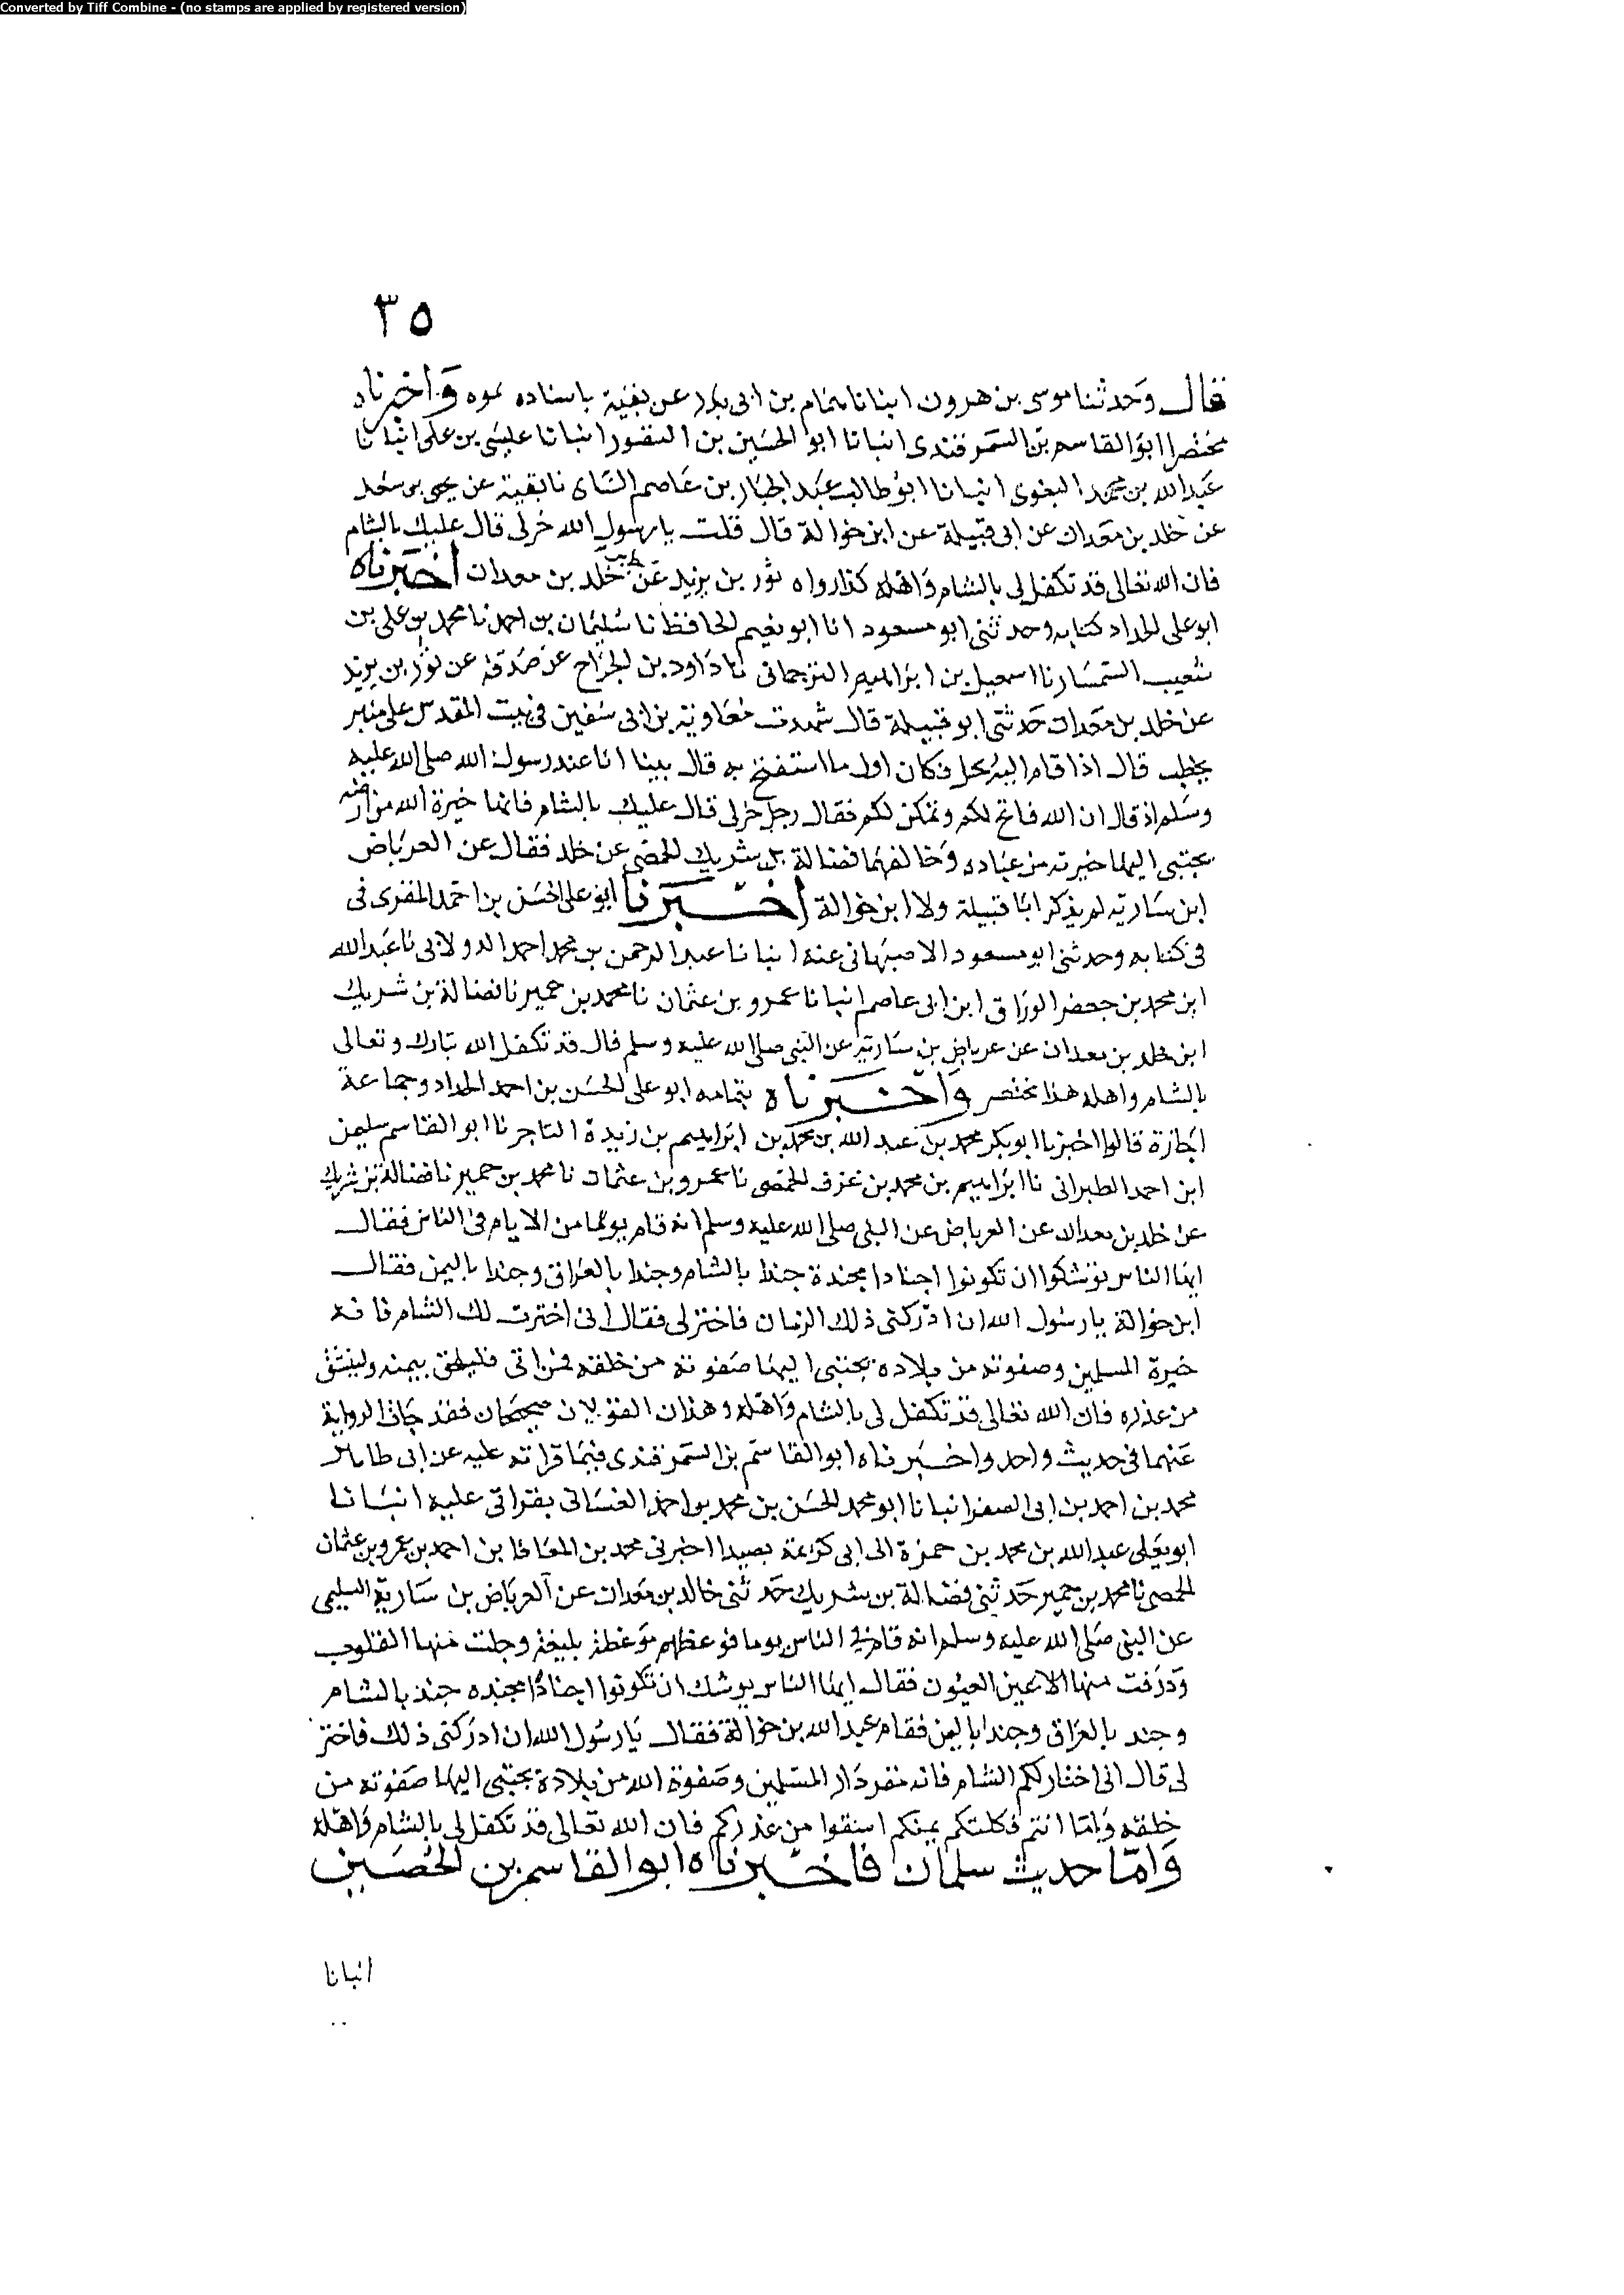 Converted by Tiff Combine - (no stamps are applied by registered version)
٣٥
قال وحدثنا موسى بن هرون انبانا تمام بن ابى بكر عن بقية باسناده نحوه واخبرناه
مختصرا ابو القاسم بن السمرقندى انبانا ابو الحسين بن النقور انبانا عيسى بن على انبانا
عبد الله بن محمد البغوى انبانا ابو طالب عبد الجبار بن عاصم النساى نا بقية عن يحيى بن سعد
عن خلد بن معدان عن ابى قتيلة عن ابن حوالة قال قلت يا رسول الله خر لى قال عليك بالشام
فان الله تعالى قد تكفل لى بالشام واهله كذا رواه ثور بن يزيد عن خلد بن معدان اخبرناه
ابو على الحداد كتابه وحدثنى ابو مسعود انا ابو نعيم الحافظ نا سليمان بن احمد نا محمد بن على بن
شعيب السمسار نا اسمعيل بن ابراهيم الترجمانى نا داود بن الجراح عن صدقة عن ثور بن يزيد
عن خلد بن معدان حدثنى ابو قتيلة قال شهدت معاوية بن ابى سفين فى بيت المقدس على منبر
يخطب قال اذا قام اليه رجل فكان اول ما استفتح به قال بينا انا عند رسول الله صلى الله عليه
وسلم اذ قال ان الله فاتح لكم وممكن لكم فقال رجل خر لى قال عليك بالشام فانها خيرة الله من ارضه
يجتبى اليها خيرته من عباده وخالفهما فضالة بن شريك الحمصى عن خلد فقال عن العرباض
ابن سارية لم يذكر ابا قتيلة ولا ابن حوالة اخبرنا ابو على الحسن بن احمد المقرى فى
فى كتابه وحدثنى ابو مسعود الاصبهانى عنه انبانا عبد الرحمن بن محمد احمد الدولابى نا عبد الله
ابن محمد بن جعفر الوراق ابن ابى عاصم انبانا عمرو بن عثمان نا محمد بن حمير نا فضالة بن شريك
ابن خلد بن معدان عن عرباض بن سارية عن النبى صلى الله عليه وسلم قال قد تكفل الله تبارك وتعالى
بالشام واهله هذا مختصر واخبرناه بتمامه ابو على الحسن بن احمد الحداد وجماعة
اجازة قالوا اخبرنا ابو بكر محمد بن عبد الله بن محمد بن ابراهيم بن زيدة التاجر نا ابو القاسم سليمن
ابن احمد الطبرانى نا ابراهيم بن محمد بن عرف الحمصى نا عمرو بن عثمان نا محمد بن حمير نا فضالة بن شريك
عن خلد بن معدان عن العرباض عن النبى صلى الله عليه وسلم انه قام يوما من الايام فى الناس فقال
ايها الناس توشكوا ان تكونوا اجنادا مجندة جندا بالشام وجندا بالعراق وجندا باليمن فقال
ابن حوالة يا رسول الله ان ادركنى ذلك الزمان فاختر لى فقال انى اخترت لك الشام فانه
خيرة المسلمين وصفوته من بلاده يجتبى اليها صفوته من خلقه فمن اتى فليلحق بيمنه وليستق
من غدره فان الله تعالى قد تكفل لى بالشام واهله وهذان القولان صحيحان فقد جات الرواية
عنهما فى حديث واحد واخبرناه ابو القاسم بن السمرقندى فيما قراته عليه عن ابى طاهر
محمد بن احمد بن ابى الصقر انبانا ابو محمد الحسن بن محمد بن احمد الغسانى بقراتى عليه انبانا
ابو يعلى عبد الله بن محمد بن حمزة الى ابى كريمة بصيدا اخبرنى محمد بن المعافا بن احمد بن عمرو بن عثمان
الحمصى نا محمد بن حمير حدثنى فضالة بن شريك حدثنى خالد بن معدان عن العرباض بن سارية السليمى
عن النبى صلى الله عليه وسلم انه قام فى الناس يوما فوعظهم موعظة بليغة وجلت منها القلوب
وذرفت منها الاعين العيون فقال ايها الناس يوشك ان تكونوا اجنادا مجنده جند بالشام
وجند بالعراق وجندا باليمن فقام عبد الله بن حوالة فقال يا رسول الله ان ادركنى ذلك فاختر
لى قال انى اختار لكم الشام فانه عقر دار المسلمين وصفوة الله من بلادة يجتبى اليها صفوته من
خلقه واما انتم فكلتكم يمنكم اسقوا من غدركم فان الله تعالى قد تكفل لى بالشام واهله
واما حديث سلمان فاخبرناه ابو القاسم بن الحصين
انبانا